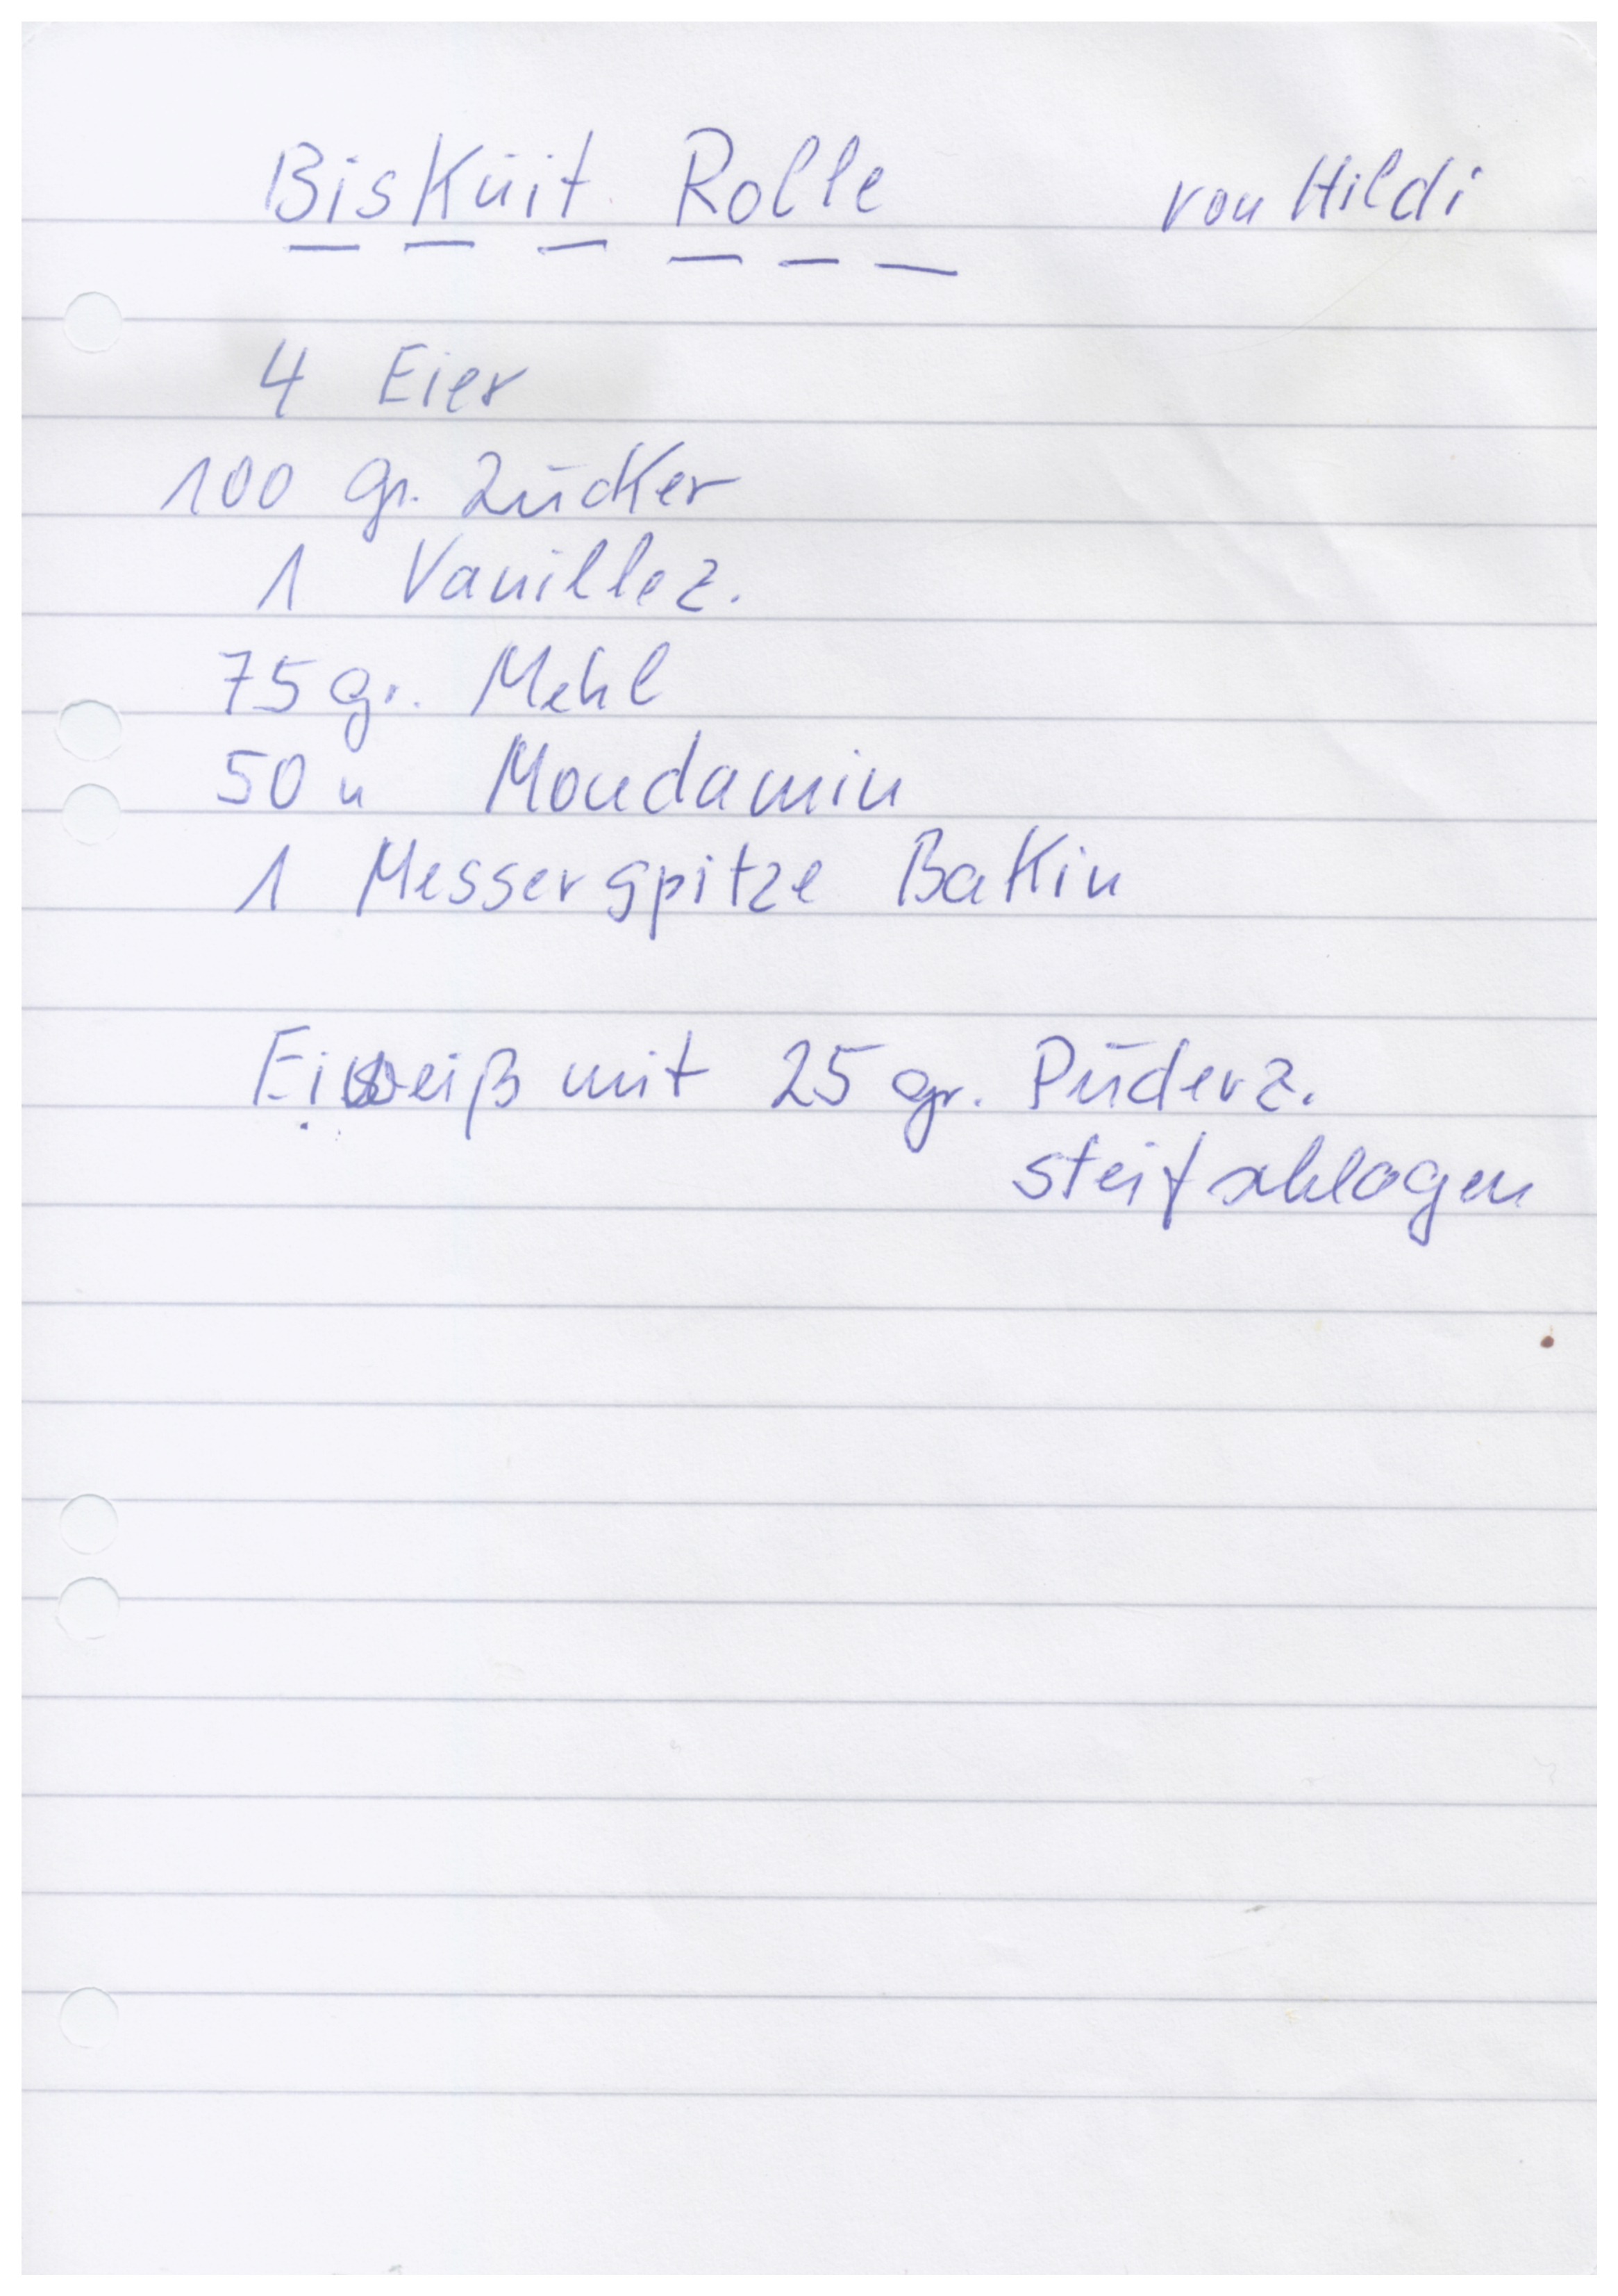 Biskuit Rolle von Hildi
4 Eier
100 gr. Zucker
1 Vanillez.
75 gr. Mehl
50 " Mondamin
1 Messerspitze Bakin
Eiweiß mit 25 gr. Puderz.
steif schlagen